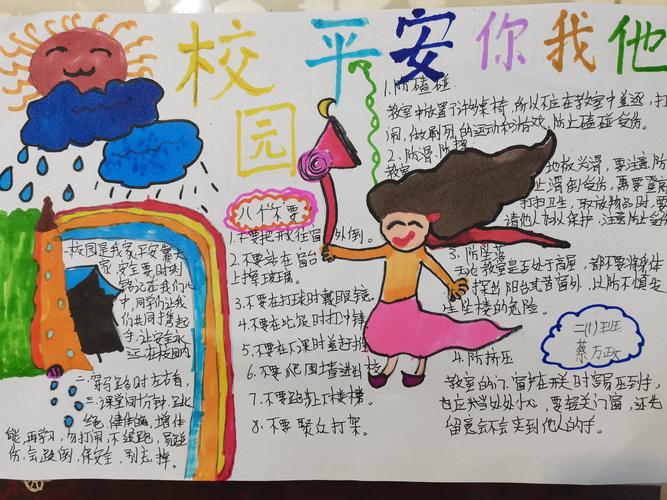 校园平安你我他
1.防磕碰
教室中放置了许多桌椅,所以不应在教室中追逐,打
闹,做剧烈的运动和游戏,防止磕碰受伤。
2.防滑、防摔
教室
地板光滑,要注意防
止滑倒受伤,需要登高
打扫卫生、取放物品时,要
请他人加以保护,注意防止
3.防坠落
无论教室是否处于高层,都不要将身体
探出阳台或者窗外,以防不慎发
生坠楼的危险。
4.防挤压
教室的门、窗户在开关时容易压到手,
也应当处处小心,要轻关门窗,还先
留意会不会夹到他人的手。
二(1)卫廷
蔡方政
八个不要
1.不要把水往窗外倒。
2.不要站在窗台
上擦玻璃。
3.不要在打球时戴眼镜。
4.不要在比赛时打冲锋
5.不要在下课时
6.不要爬围墙进出校
7.不要跑步上下楼梯。
8.不要聚众打架。
一、校园是我家,平安靠大
家,安全要时刻
铭记在我们心
中,同学们让我
们共同携起
手,让安全永
远在校园内
二、
左右看,
三、课堂间十分钟,
绝,健体魄,增体
能,再学习,勿打闹,不猛跑,易碰
伤,会跌倒,保安全,别忘掉。